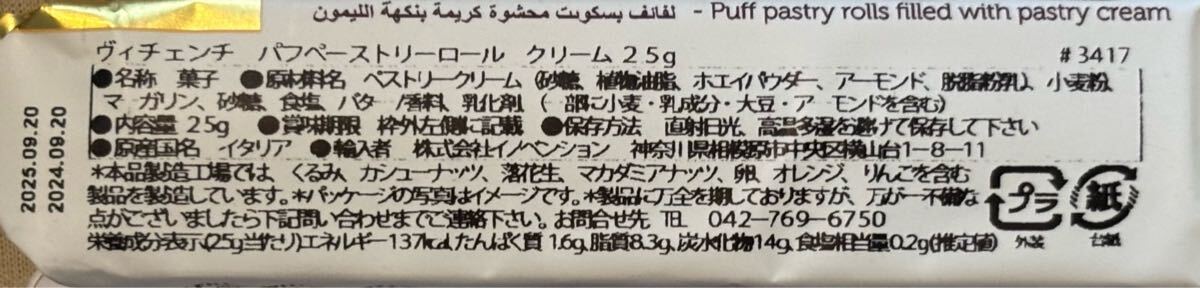 لفائف بسكويت محشوة كريمة بنكهة الليمون - Puff pastry rolls filled with pastry cream
ヴィチェンチ パフペーストリーロール クリーム 25g #3417
●名称 菓子 ●原材料名 ペストリークリーム(砂糖、植物油脂、ホエイパウダー、アーモンド、脱脂粉乳)、小麦粉、
マーガリン、砂糖、食塩、バター/香料、乳化剤(一部に小麦・乳成分・大豆・アーモンドを含む)
●内容量 25g ●賞味期限 枠外左側に記載 ●保存方法 直射日光、高温多湿を避けて保存して下さい
●原産国名 イタリア ●輸入者 株式会社イノベンション 神奈川県相模原市中央区横山台1-8-11
*本品製造工場では、くるみ、カシューナッツ、落花生、マカダミアナッツ、卵、オレンジ、りんごを含む
製品を製造しています。*パッケージの写真はイメージです。*製品に万全を期しておりますが、万が一不備な
点がございましたら下記問い合わせまでご連絡下さい。お問合せ先 TEL 042-769-6750
栄養成分表示(25g当たり)エネルギー137kcal,たんぱく質 1.6g,脂質8.3g,炭水化物14g,食塩相当量0.2g(推定値)
プラ
外装
紙
台紙
2025.09.20
2024.09.20